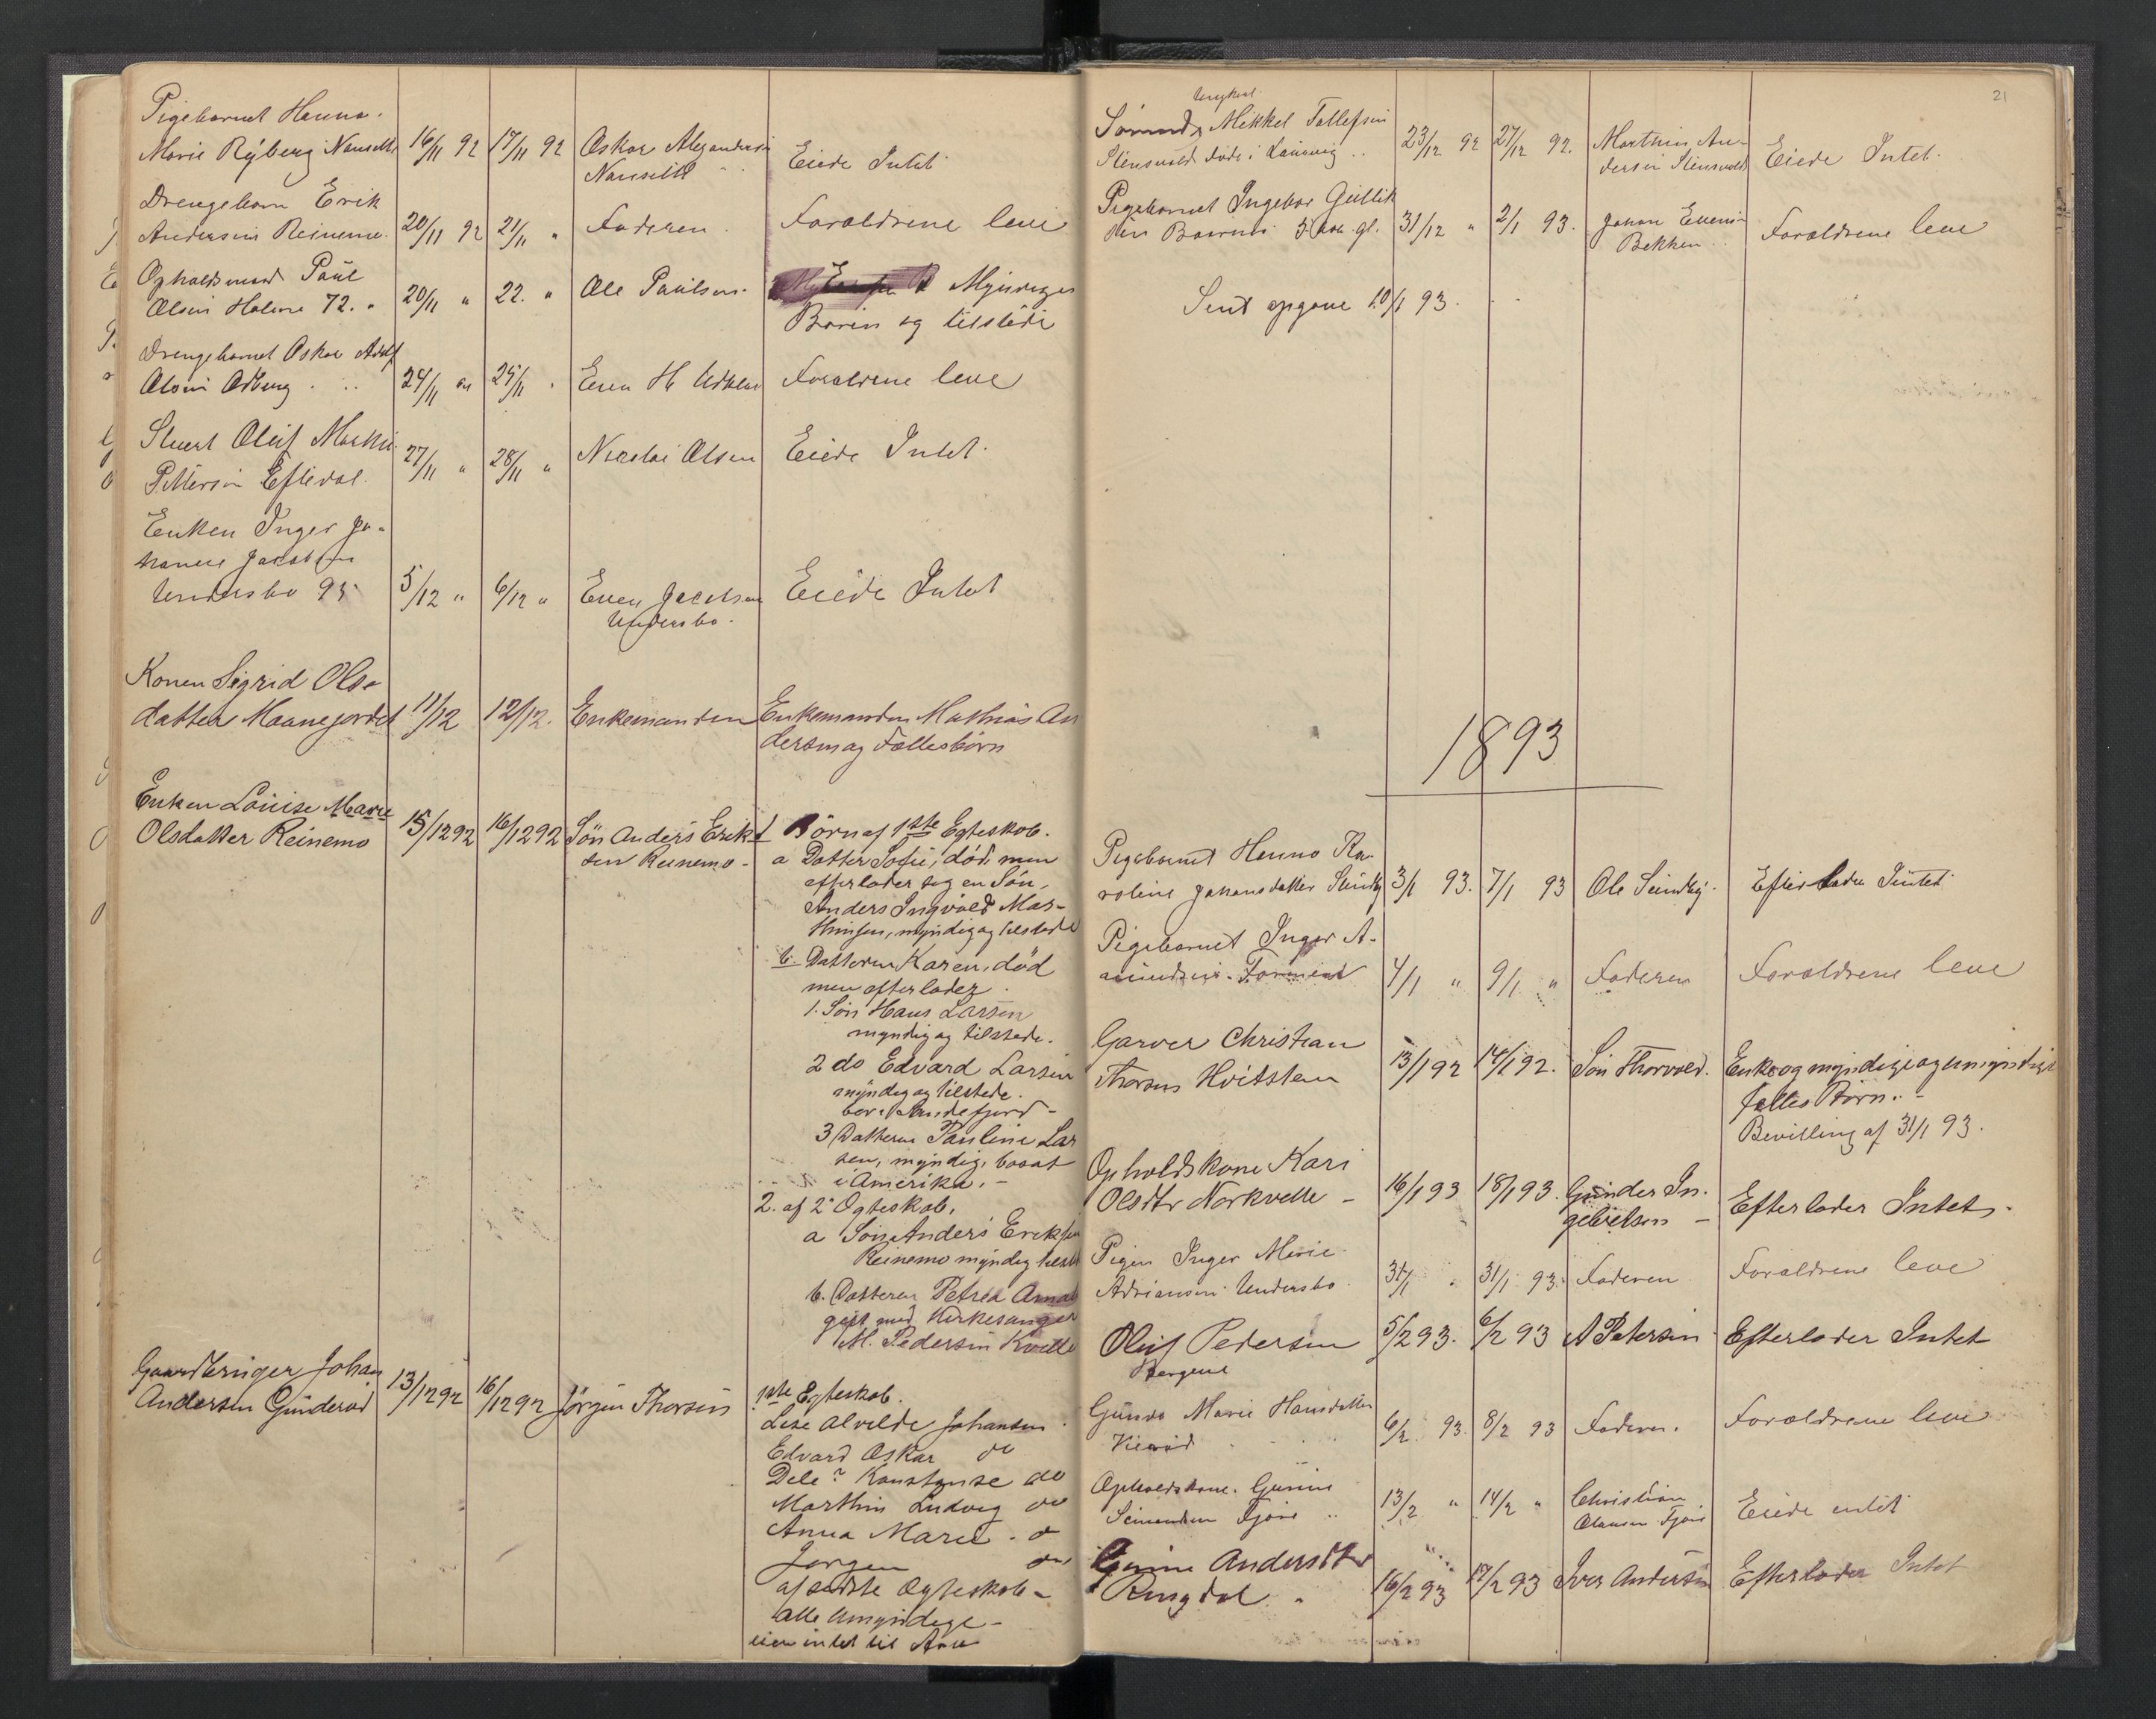 Pigebarnet Hanna
Marie Ryberg Nanset 16/11 92 17/11 92 Oskar Alexandersen
Nanset Eiede Intet
Drengebarn Erik
Andersen Reinemo 20/11 92 21/11 " Faderen Foraldrene leve
Opholdsmand Paul
Olsen Holme 72. " 20/11 " 22. " Ole Paulsen Myndige
Børn og tilstede
Drengebarnet Oskar Adolf
Olsen 24/11 25/11 " Even H Foraldrene leve
Oluf Martin
Pettersen Eftedal 27/11 " 28/11 " Nicolai Olsen Eiede Intet.
Enken Inger Jo-
hanne Jacobsen
Undersbo 93 5/12 " 6/12 " Even Jacobsen Eiede Intet
Undersbo.
Konen Sigrid Ols-
datter Maanejordet 11/12 12/12. Enkemanden Enkemanden Mathias An
dersen og Fællesbørn
Enken Louise Marie
Olsdatter Reinemo 15/12 92 16/12 92 Søn Anders Erik
sen Reinemo - 1 Børn af 1ste Egteskab.
a Datter Sofie, død, men
efterlader sig en Søn,
Anders Ingvald Mar-
thinsen, myndig og tilstede
b. Datteren Karen, død
men efterlader
1. Søn Hans Larsen
myndig og tilstede.
2 do Edvard Larsen
myndig og tilstede.
bor i Sandefjord -
3 Datteren Pauline Lar
sen, myndig, bosat
i Amerika. -
2. af 2 Egteskab,
a Søn Anders Eriksen
Reinemo myndig tilst
b. Datteren Petrea Anna
gift med Kirkesanger
M. Pedersen Kvelle
Gaardbruger Johan
Andersen Gunderød 13/12 92 16/12 92 Jørgen Thorsen 1ste Egteskab.
Lise Alvilde Johansen
Edvard Oskar do
Dele? Konstanse do
Marthin Ludvig do
Anna Marie do
Jørgen do
af sidste Egteskab -
alle Umyndige -
eier intet til Arv
21
Mikkel Tollefsen
Stensvold døde i Laurvig 23/12 92 27/12 92. Marthin An-
dersen Stensvold Eiede Intet.
Pigebarnet Ingebor Gullik
sen 31/12 " 2/1 93. Johan Evensen
Bekken Foraldrene leve
Sent opgave 10/1 93.
1893
Pigebarnet Hanna Ka-
roline Johansdatter Sundby 3/1 93. 7/1 93 Ole Sundby. Efterlader Intet
Pigebarnet Inger A-
mundsen 4/1 " 9/1 " Faderen Foraldrene leve
Garver Christian
Thorsen Hvitsten 13/1 92 14/1 92. Søn Thorvald. Enke og myndige og umyndige
fælles Børn. -
Bevilling af 31/1 93.
Opholdskone Kari
Olsdtr Norkvelle - 16/1 93 18/1 93. Gunder In-
gebretsen - Efterlader Intet.
Pigen Inger Marie
Adriansen Undersbo 31/1 " 31/1 93. Faderen Foraldrene leve
Oluf Pedersen 5/2 93. 6/2 93 A Petersen Efterlader Intet
Bergene
Gunda Marie Hansdatter
6/2 93 8/2 93 Faderen. Foraldrene leve
Opholdskone. Gunine
Simensen Fjære 13/2 " 14/2 " Christian
Olausen Fjære Eiede intet
Gurine Andersdtr
Ringdal " 16/2 93 17/2 93 Iver Andersen Efterlader Intet